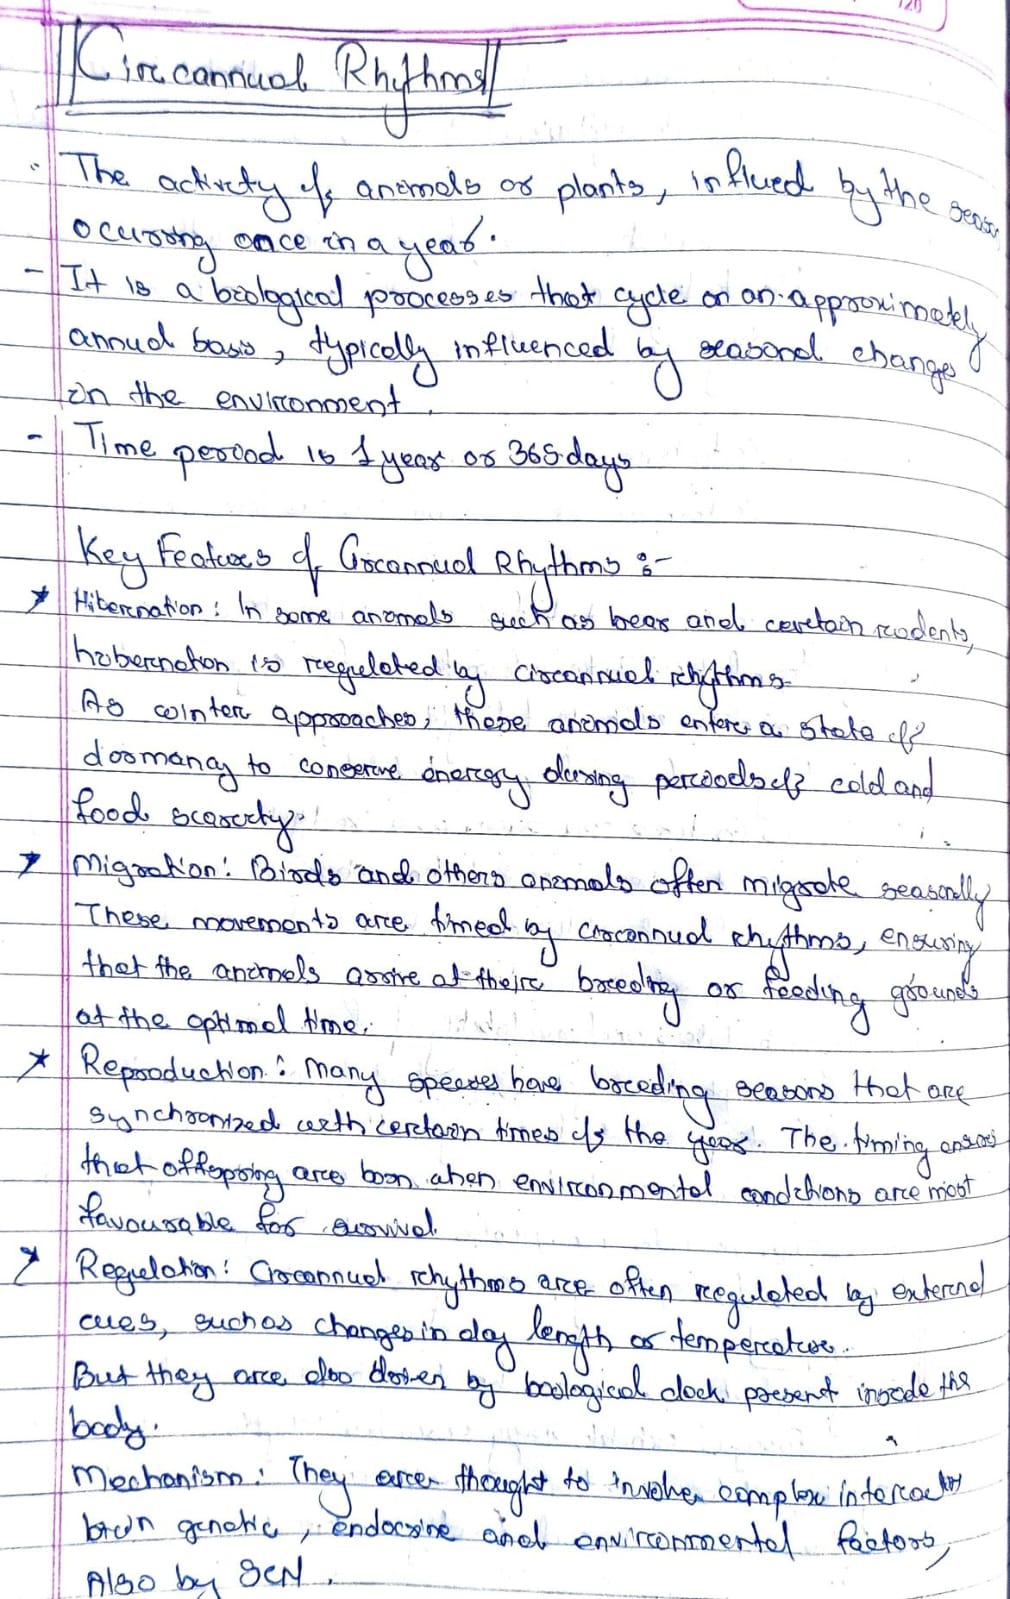 Circannual Rhythms
The activity of animals or plants, influed by the seas
ocurring once in a year.
- It is a biological processes that cycle on an approximately
annual basis, typically influenced by seasonal changes
in the environment.
- Time period is 1 year or 365 days
Key Features of Circannual Rhythms :-
* Hibernation: In some animals such as bear and certain rodents,
hibernation is regulated by circannual rhythms.
As winter approaches, these animals enter a state of
dormancy to conserve energy during periods of cold and
food scarcity.
* Migration: Birds and others animals often migrate seasonally
These movements are timed by circannual rhythms, ensuring
that the animals arrive at their breeding or feeding grounds
at the optimal time.
* Reproduction: Many species have breeding seasons that are
synchronized with certain times of the year. The timing ensures
that offspring are born when environmental conditions are most
favourable for survival.
* Regulation: Circannual rhythms are often regulated by external
cues, such as changes in day length or temperature.
But they are also driven by biological clock present inside the
body.
Mechanism: They are thought to involve complex interaction
btwn genetic, endocrine and environmental factors,
Also by SCN.